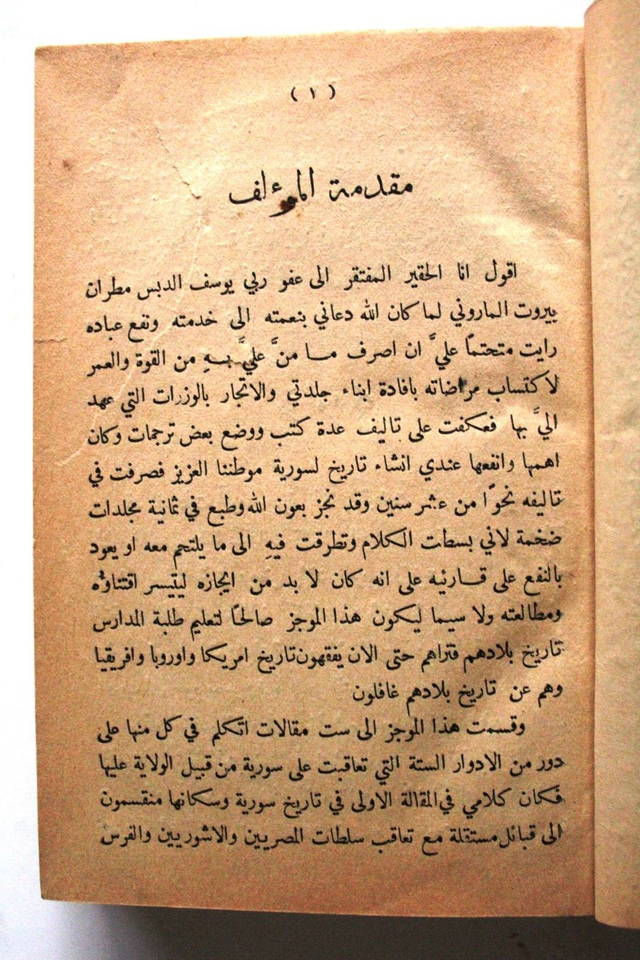 ( ١ )
مقدمة الموءلف
اقول انا الحقير المفتقر الى عفو ربي يوسف الدبس مطران
بيروت الماروني لما كان الله دعاني بنعمته الى خدمته ونفع عباده
رايت متحتماً عليَّ ان اصرف ما منَّ عليَّ بهِ من القوة والعمر
لاكتساب مراضاته بافادة ابناء جلدتي والاتجار بالوزرات التي عهد
اليَّ بها فعكفت على تاليف عدة كتب ووضع بعض ترجمات وكان
اهمها وانفعها عندي انشاء تاريخ لسورية موطننا العزيز فصرفت في
تاليفه نحوًا من عشر سنين وقد نجز بعون الله وطبع في ثمانية مجلدات
ضخمة لاني بسطت الكلام وتطرقت فيهِ الى ما يلتحم معه او يعود
بالنفع على قارئيه على انه كان لا بد من ايجازه ليتيسر اقتناؤه
ومطالعته ولا سيما ليكون هذا الموجز صالحًا لتعليم طلبة المدارس
تاريخ بلادهم فتراهم حتى الان يفقهون تاريخ امريكا واوروبا وافريقيا
وهم عن تاريخ بلادهم غافلون
وقسمت هذا الموجز الى ست مقالات اتكلم في كل منها على
دور من الادوار الستة التي تعاقبت على سورية من قبيل الولاية عليها
فكان كلامي في المقالة الاولى في تاريخ سورية وسكانها منقسمون
الى قبائل مستقلة مع تعاقب سلطات المصريين والاشوريين والفرس